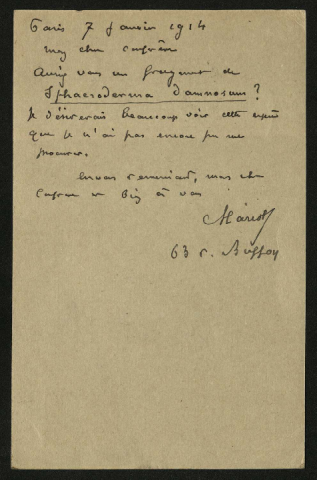 Paris 7 janvier 1914
Mon cher confrère
Auriez vous un fragment de
Sphaeroderma damnosum ?
Je désirerais beaucoup voir cette espèce
que je n'ai pas encore pu me
procurer.
En vous remerciant, mon cher
confrère et bien à vous
63 r. Buffon